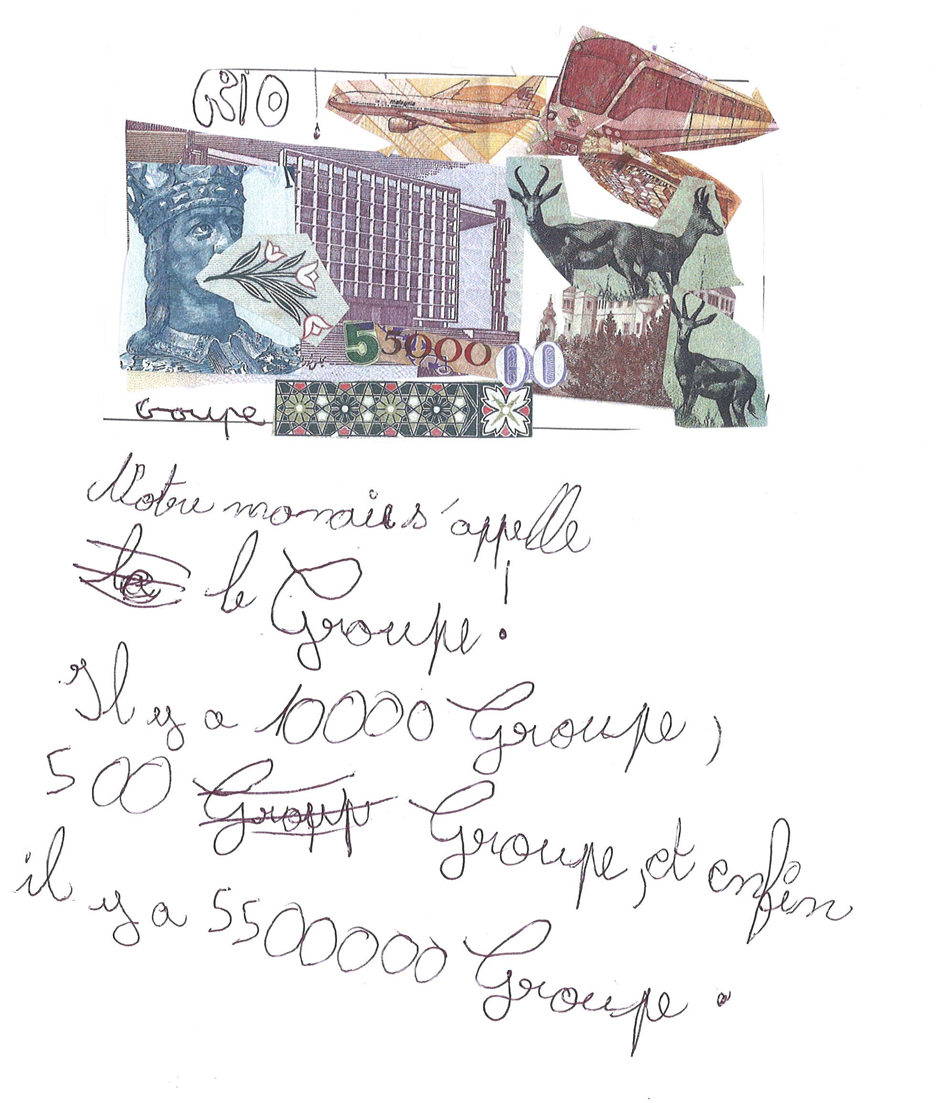 RIO
malaysia
5500000
Notre monaie s'appelle
le Groupe !
Il y a 10000 Groupe,
500 Groupe, et enfin
il y a 5500000 Groupe.